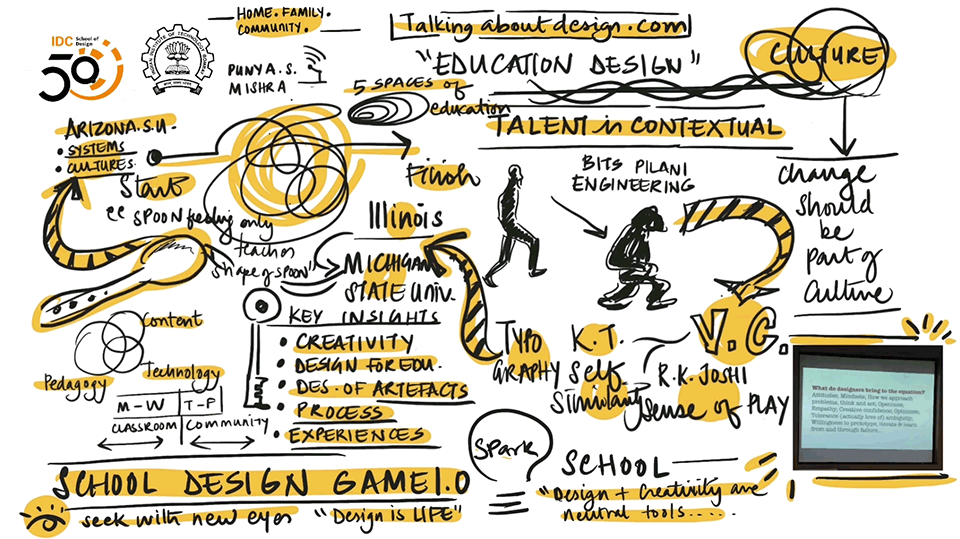 IDC School of Design
50
HOME. FAMILY.
COMMUNITY.
PUNYA. S.
MISHRA
Talking about design.com
"EDUCATION DESIGN"
CULTURE
5 SPACES of
education
TALENT in CONTEXTUAL
ARIZONA. S.U.
• SYSTEMS
• CULTURES.
Start
Finish
BITS PILANI
ENGINEERING
change
should
be
part of
culture
"SPOON feeding only
teaches
shape of spoon"
Illinois
MICHIGAN
STATE UNIV.
KEY INSIGHTS
• CREATIVITY
• DESIGN FOR EDU.
• DES. OF ARTEFACTS
• PROCESS
• EXPERIENCES
Content
Pedagogy
Technology
M-W T-F
CLASSROOM COMMUNITY
TYPO
GRAPHY
K.T.
Self
V.C.
R.K. JOSHI
Sense of PLAY
What do designers bring to the equation?
Attitudes, Mindsets, How we approach
problems, think and act, Openness,
Empathy, Creative confidence, Optimism,
Tolerance (actually love of) ambiguity,
Willingness to prototype, iterate & learn
from and through failure...
SCHOOL DESIGN GAME 1.0
seek with new eyes "Design is LIFE"
SPark
SCHOOL
"Design + Creativity are
neutral tools.....